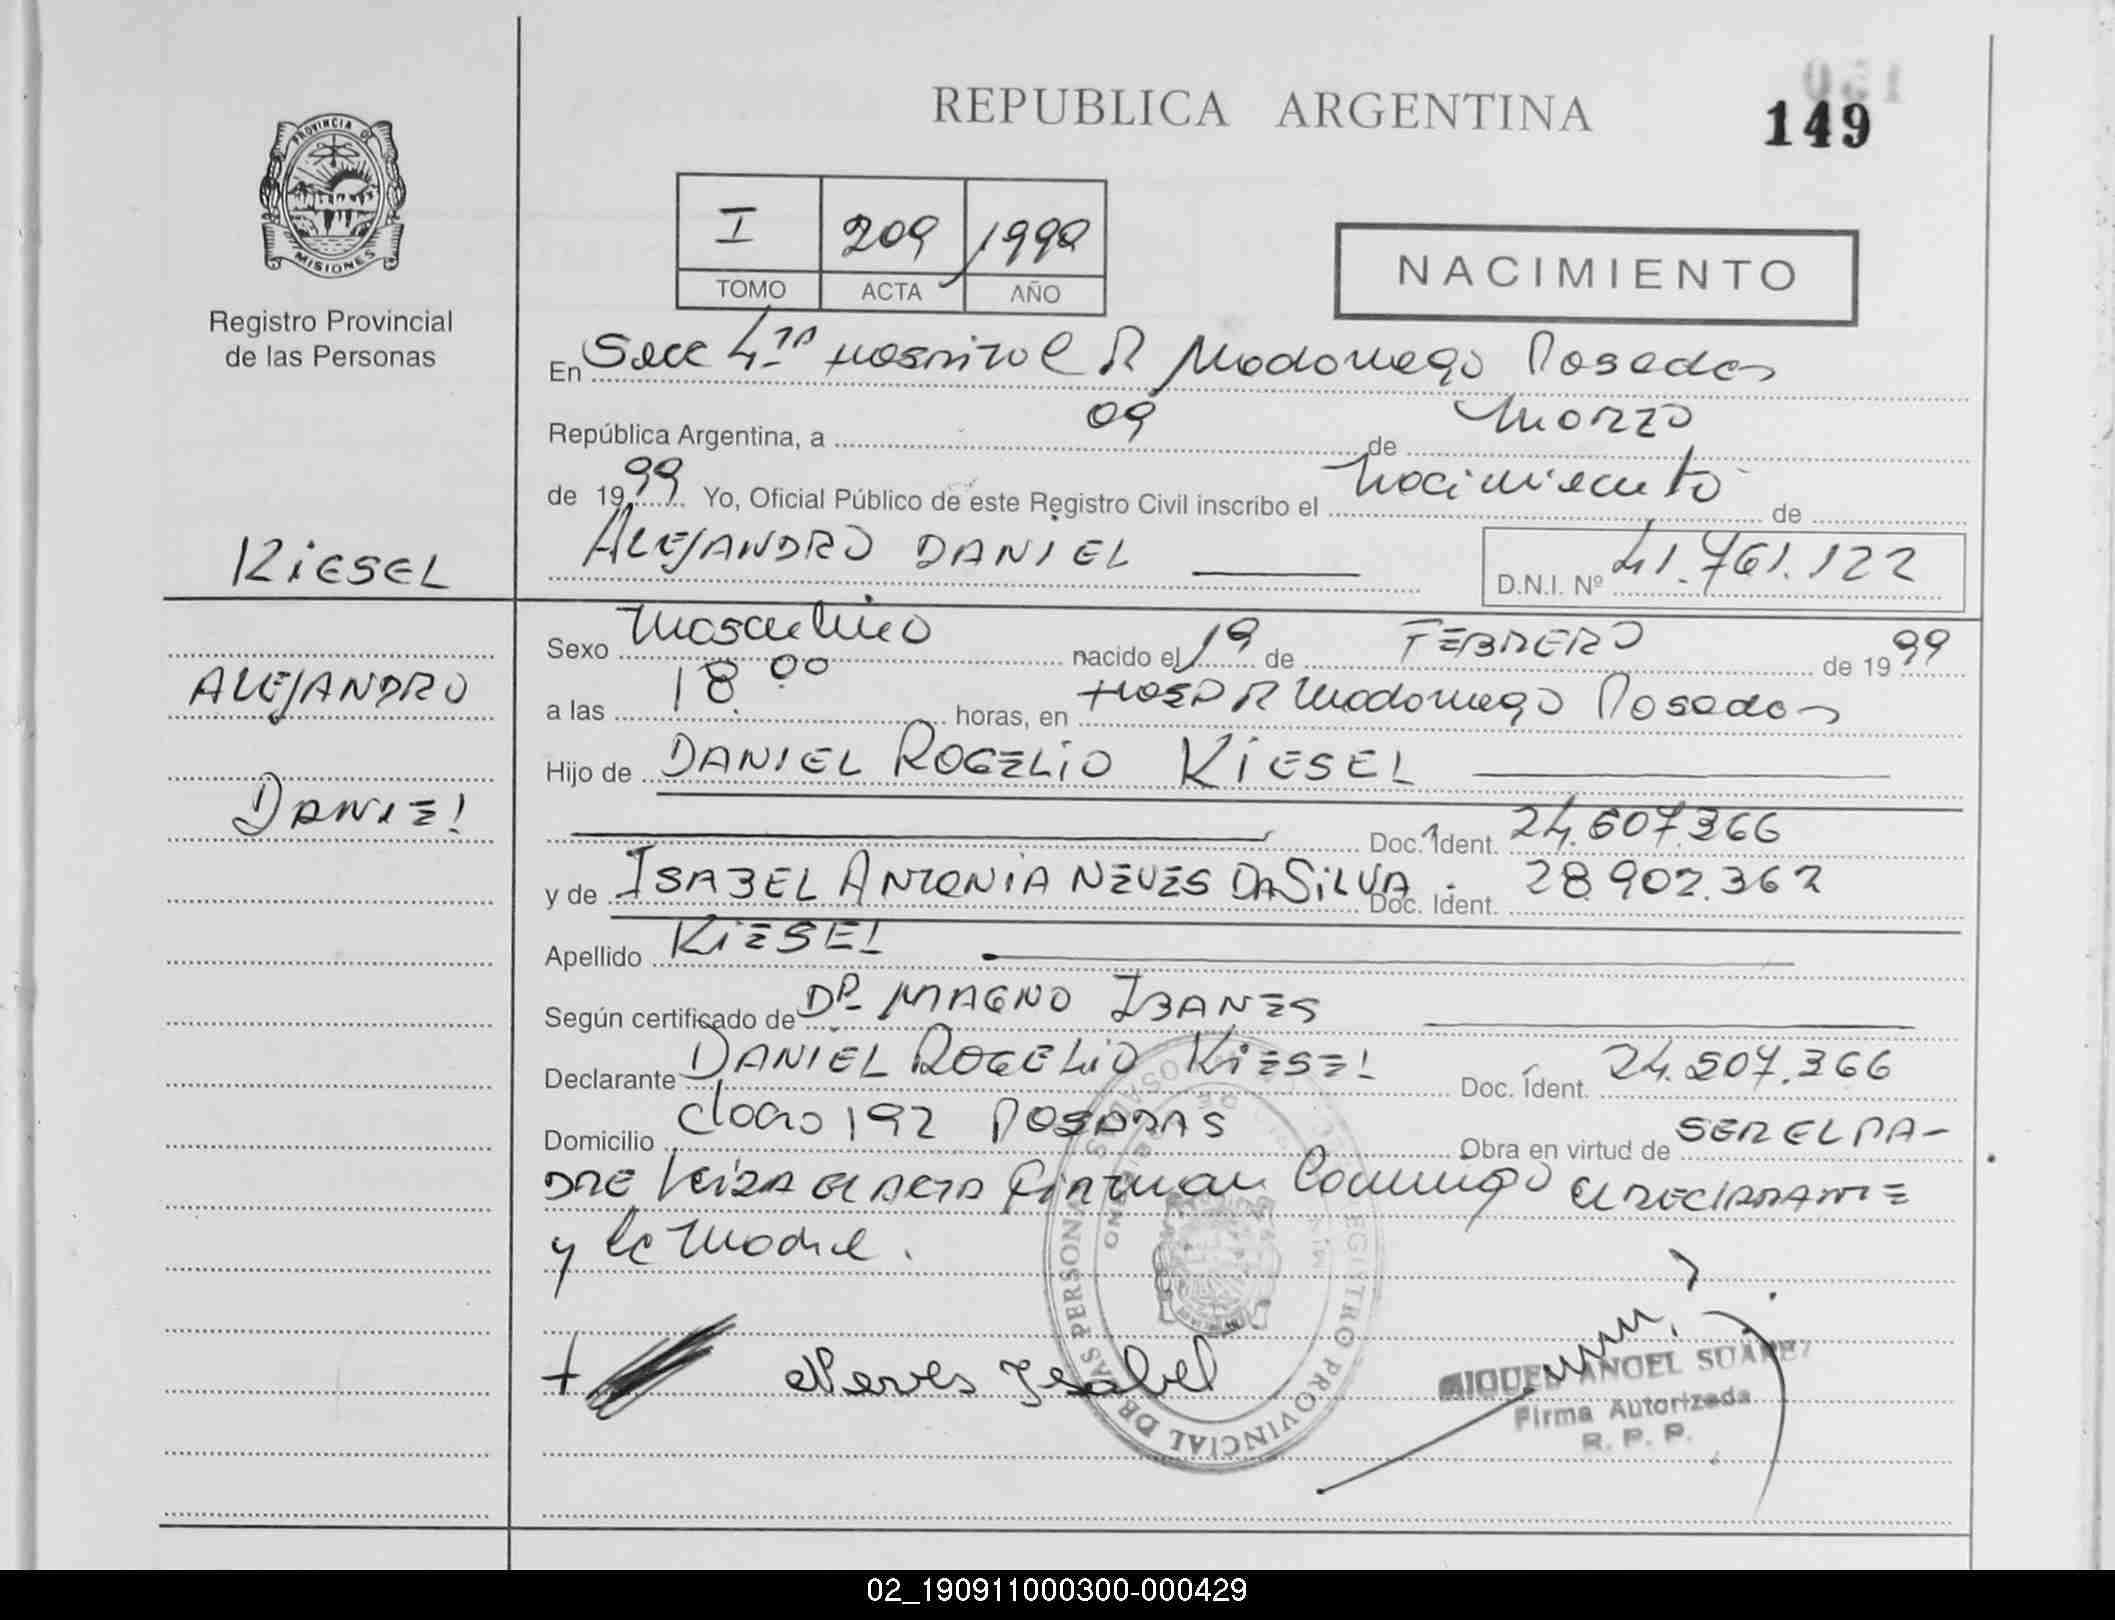 REPUBLICA ARGENTINA
149
PROVINCIA DE
MISIONES
Registro Provincial
de las Personas
I 209 1999
TOMO ACTA AÑO
NACIMIENTO
En Secc 4ta Hospital R Madariaga Posadas
República Argentina, a 09 de Marzo
de 1999 Yo, Oficial Público de este Registro Civil inscribo el Nacimiento de
ALEJANDRO DANIEL
D.N.I. Nº 41.761.122
KIESEL
ALEJANDRO
DANIEL
Sexo Masculino nacido el 19 de FEBRERO de 1999
a las 18.00 horas, en Hosp R Madariaga Posadas
Hijo de DANIEL ROGELIO KIESEL
Doc. Ident. 24.607.366
y de ISABEL ANTONIA NEVES DA SILVA Doc. Ident. 28.902.362
Apellido KIESEL
Según certificado de DR MAGNO IBANES
Declarante DANIEL ROGELIO KIESEL Doc. Ident. 24.507.366
Domicilio 192 POSADAS Obra en virtud de SER EL PA-
DRE el ACTA firman Conmigo el DECLARANTE
y la Madre.
Neves Isabel
REGISTRO PROVINCIAL DE LAS PERSONAS
MIGUEL ANGEL SUAREZ
Firma Autorizada
R. P. P.
02_190911000300-000429